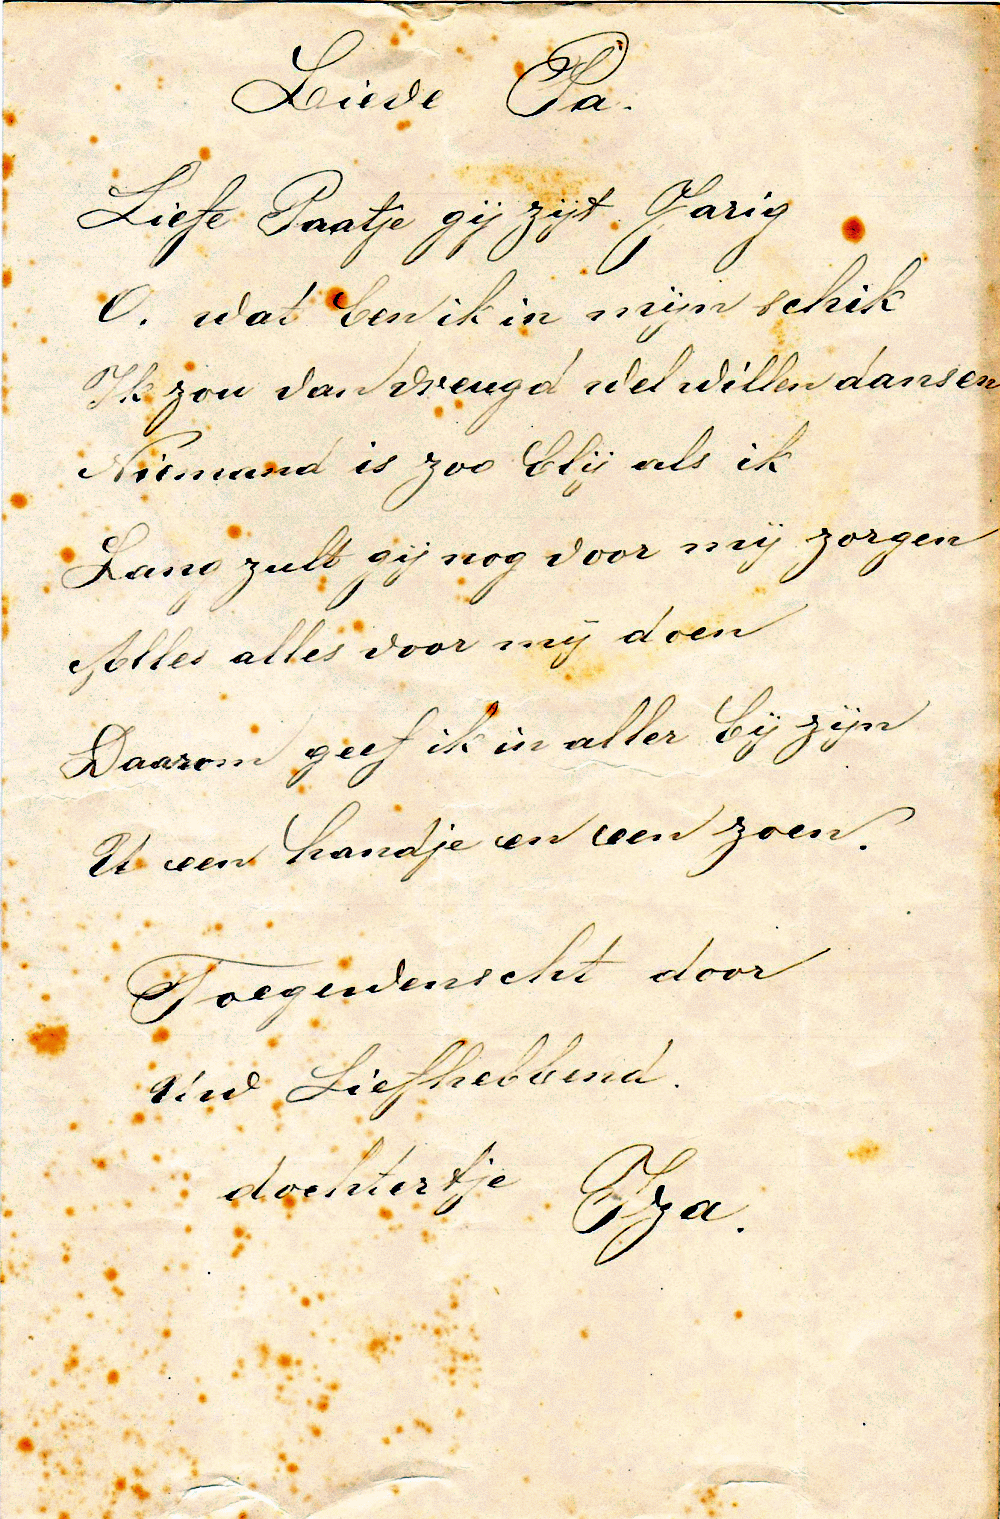 Lieve Pa.
Liefe Paatje gij zijt Jarig
O. wat ben ik in mijn schik
Ik zou van vreugd wel willen dansen
Niemand is zoo blij als ik
Lang zult gij nog voor mij zorgen
Alles alles voor mij doen
Daarom geef ik in aller bij zijn
U een handje en een zoen.
Toegewenscht door
Uw Liefhebbend.
dochtertje Iza.